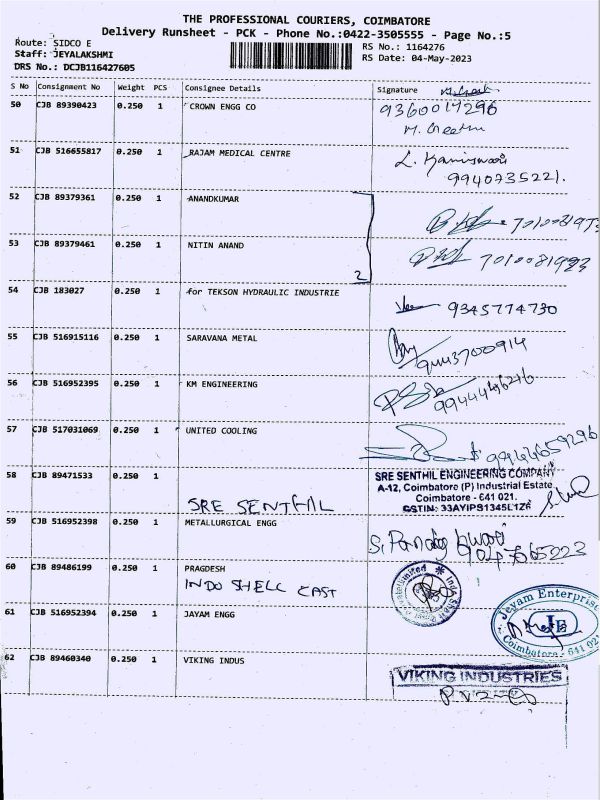 THE PROFESSIONAL COURIERS, COIMBATORE
Delivery Runsheet - PCK - Phone No.:0422-3505555 - Page No.:5
Route: SIDCO E
Staff: JEYALAKSHMI
DRS No.: DCJB116427605
RS No.: 1164276
RS Date: 04-May-2023
S No Consignment No Weight PCS Consignee Details Signature
50 CJB 89390423 0.250 1 CROWN ENGG CO 9360017296
M. Geetha
51 CJB 516655817 0.250 1 RAJAM MEDICAL CENTRE
9940735221.
52 CJB 89379361 0.250 1 ANANDKUMAR
53 CJB 89379461 0.250 1 NITIN ANAND 7010081993
2
54 CJB 183027 0.250 1 for TEKSON HYDRAULIC INDUSTRIE 9345774730
55 CJB 516915116 0.250 1 SARAVANA METAL 9443700914
56 CJB 516952395 0.250 1 KM ENGINEERING
57 CJB 517031069 0.250 1 UNITED COOLING
58 CJB 89471533 0.250 1
SRE SENTHIL
SRE SENTHIL ENGINEERING COMPANY
A-12, Coimbatore (P) Industrial Estate
Coimbatore - 641 021.
GSTIN: 33AYIPS1345L1ZR
59 CJB 516952398 0.250 1 METALLURGICAL ENGG
60 CJB 89486199 0.250 1 PRAGDESH
INDO SHELL CAST
61 CJB 516952394 0.250 1 JAYAM ENGG
Jeyam Enterprise
JE
Coimbatore - 641 021
62 CJB 89460340 0.250 1 VIKING INDUS
VIKING INDUSTRIES